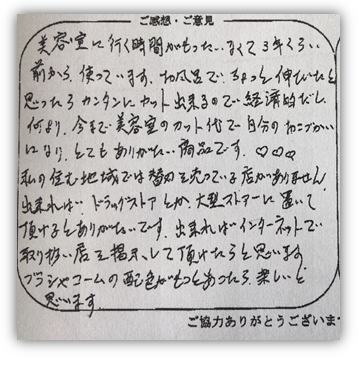 ご感想・ご意見
美容室に行く時間がもったいなくて3年くらい
前から、使っています。お風呂で ちょっと伸びたなと
思ったら カンタンに カット出来るので経済的だし
何より、今まで美容室のカット代で自分のおこづかい
になり、とてもありがたい商品です。♡♡♡
私の住む地域では替刃を売っている店がありません
出来れば、ドラッグストアとか、大型ストアーに置いて
頂けるとありがたいです。出来ればインターネットで
取り扱い店を掲示して頂けたらと思います
ブラシやコームの配色がもっとあったら、楽しいと
思います。
ご協力ありがとうございま